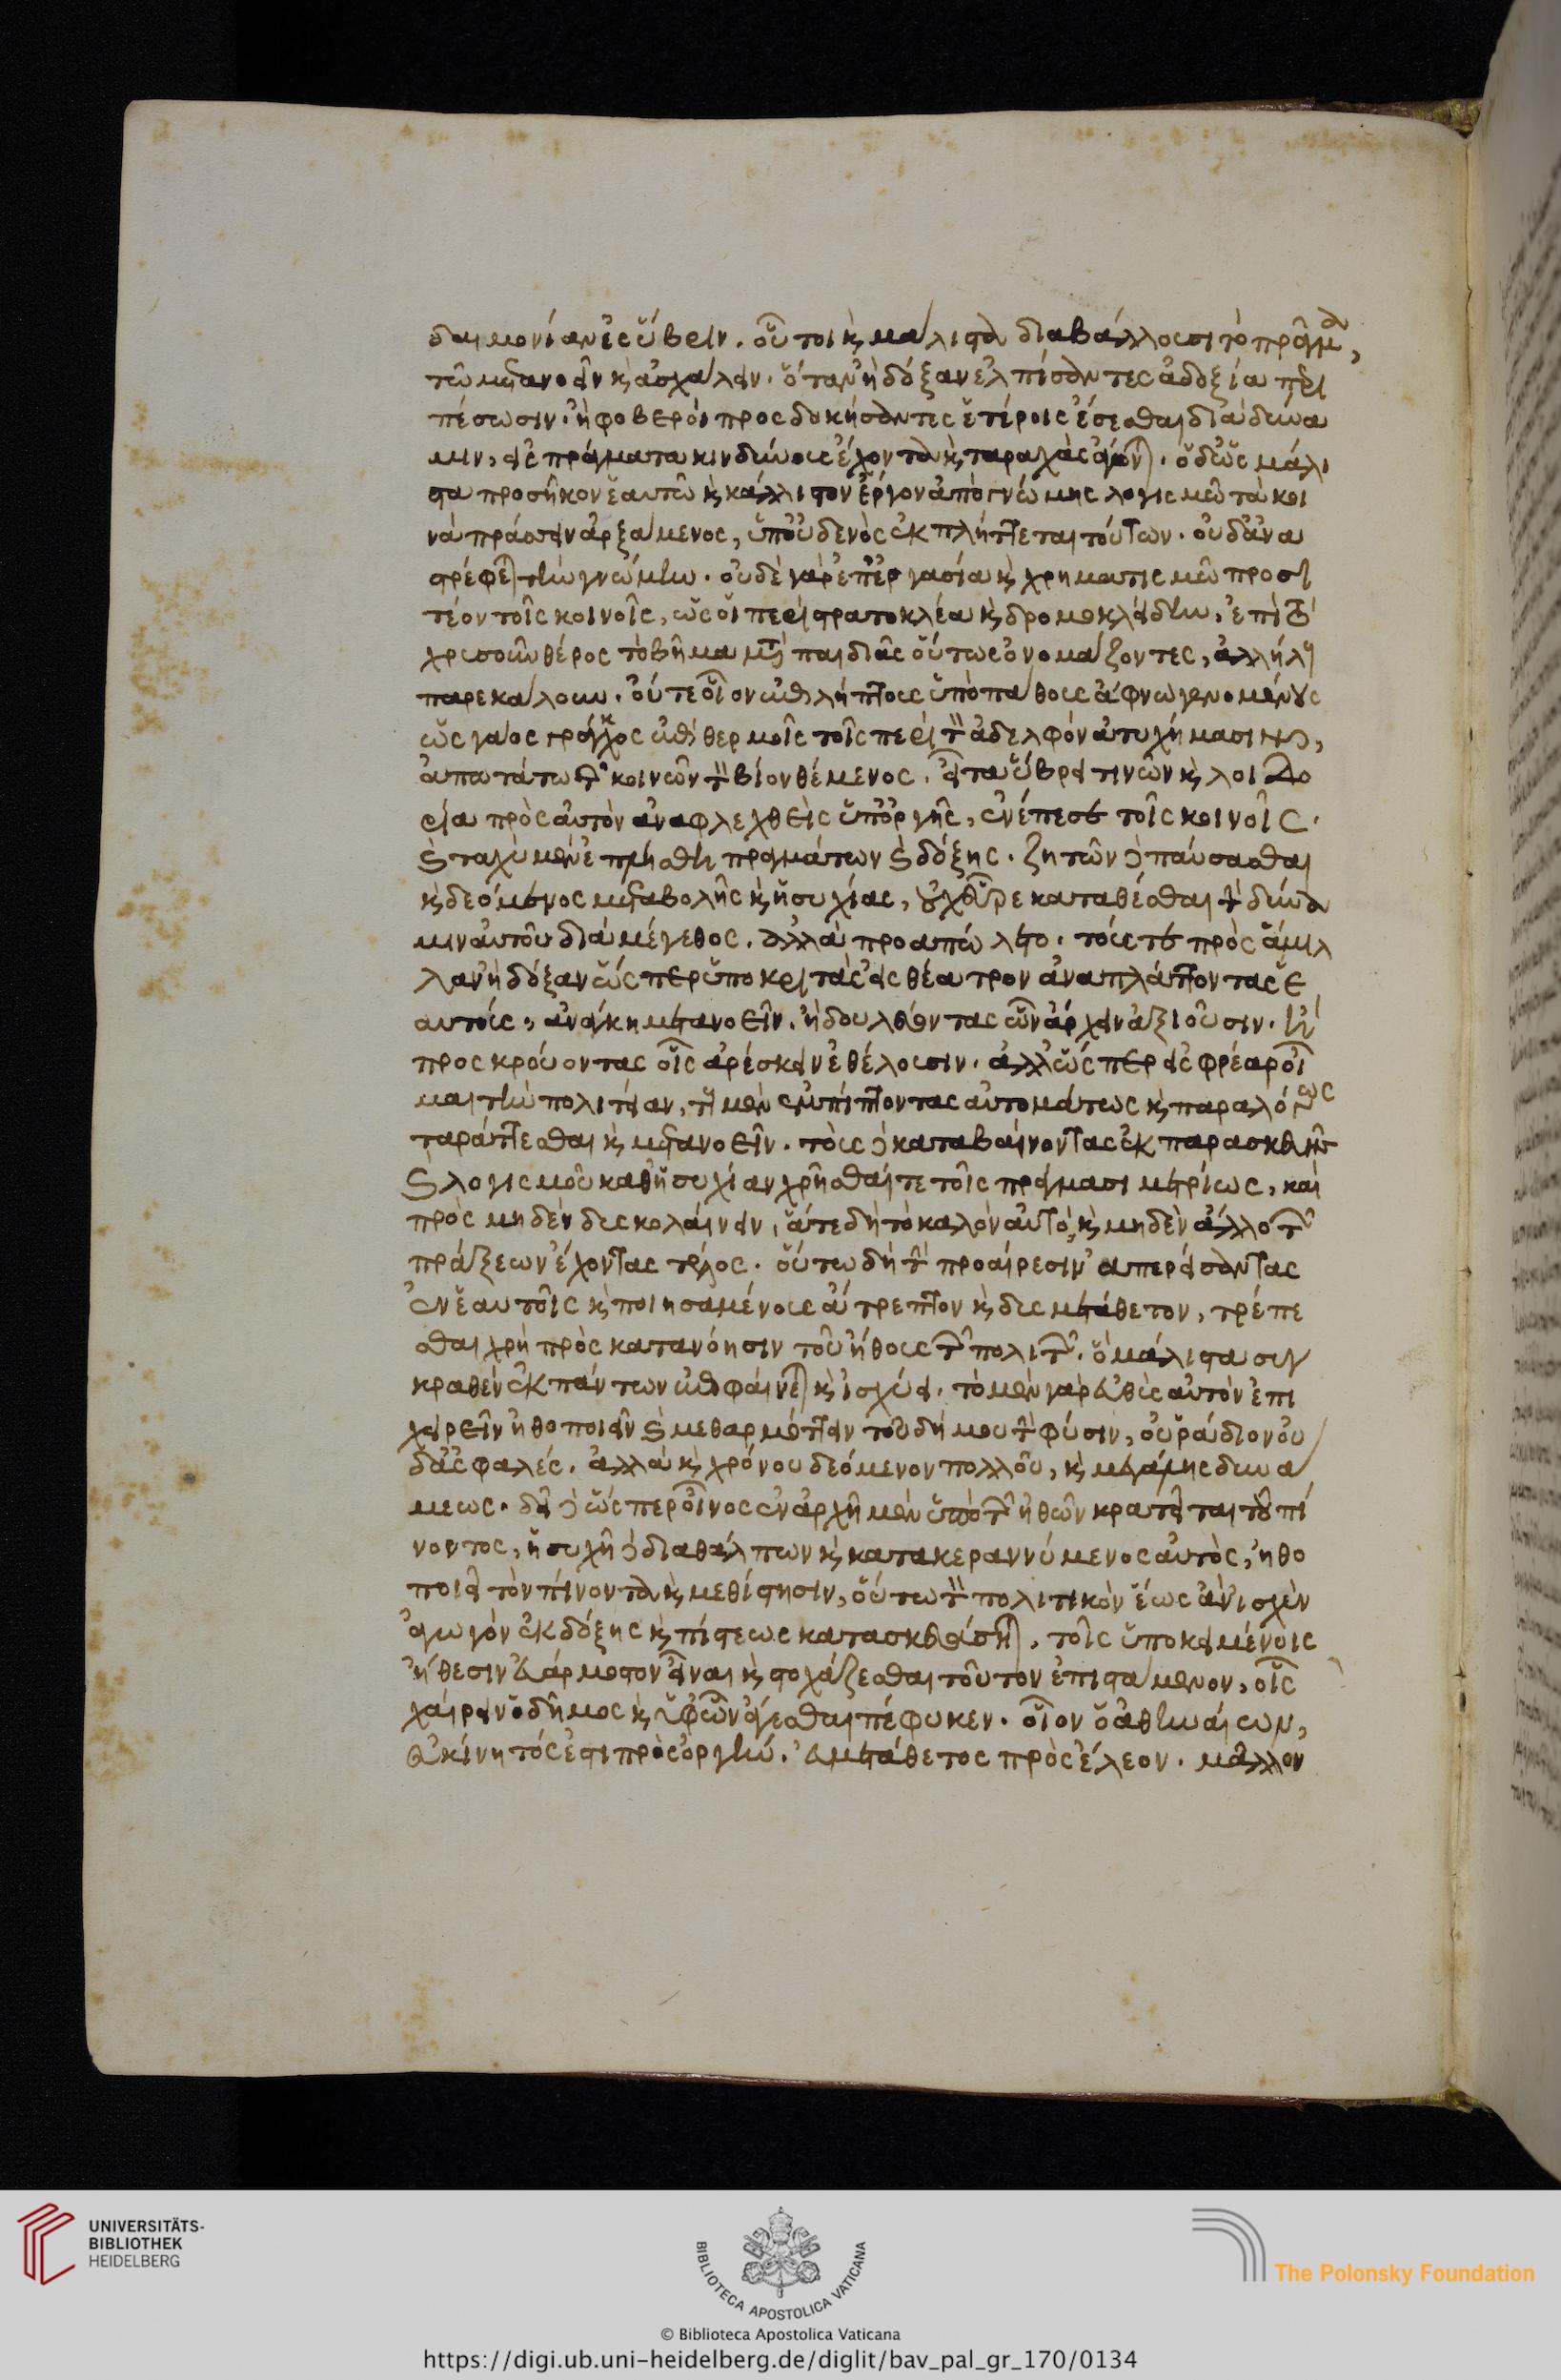 δαιμονίαν ἰσόβειν. οὗτοι κ μάλιστα διαβάλλουσι τὸ πρᾶγμα,
τῷ μετανοεῖν κ ἀσχάλειν. ὅταν ἢ δόξαν ἐλπίσαντες ἀδοξία περι
πέσωσιν. ἢ φοβεροὶ προσδοκήσαντες ἑτέροις ἔσεσθαι διὰ δύνα
μιν, εἰς πράγματα κινδύνους ἔχοντα κ ταραχὰς ἄγωνται. ὁ δ' ὡς μάλι
στα προσῆκον ἑαυτῷ κ κάλλιστον ἔργον ἀπὸ γνώμης λογισμῷ τὰ κοι
νὰ πράσσειν ἀρξάμενος, ὑπ' οὐδενὸς ἐκπλήττεται τούτων. οὐδ' ἀνα
στρέφεται τὴν γνώμην. οὐδὲ γὰρ ἐπ' ἐργασία κ χρηματισμῷ προσι
τέον τοῖς κοινοῖς, ὡς οἱ περὶ στρατοκλέα κ δρομοκλείδην, ἐπὶ τὸ
χρυσοῦν θέρος τὸ βῆμα μετὰ παιδιᾶς οὕτως ὀνομάζοντες, ἀλλήλους
παρεκάλουν. οὔτε οἷον ἐπιλήπτους ὑπὸ πάθους ἄφνω γενομένους
ὡς γάιος γράγχος ἐπὶ θερμοῖς τοῖς περὶ τὸν ἀδελφὸν ἀτυχήμασιν,
ἀπωτάτω τῶν κοινῶν τὸν βίον θέμενος. εἶτα ὕβρει τινῶν κ λοιδο
ρία πρὸς αὐτὸν ἀναφλεχθεὶς ὑπ' ὀργῆς, ἐνέπεσε τοῖς κοινοῖς.
κ ταχὺ μὲν ἐπλήσθη πραγμάτων κ δόξης. ζητῶν δὲ παύσασθαι
κ δεόμενος μεταβολῆς κ ἡσυχίας, οὐχ εὗρε καταθέσθαι τὴν δύνα
μιν αὐτοῦ διὰ μέγεθος. ἀλλὰ προαπώλετο. τούς τε πρὸς ἅμιλ
λαν ἢ δόξαν ὥσπερ ὑποκριτὰς εἰς θέατρον ἀναπλάττοντας ἑ
αυτούς, ἀνάγκη μετανοεῖν. ἢ δουλεύοντας ὧν ἄρχειν ἀξιοῦσιν. ἢ
προσκρούοντας οἷς ἀρέσκειν ἐθέλουσιν. ἀλλ' ὥσπερ εἰς φρέαρ οἶ
μαι τὴν πολιτείαν, τοὺς μὲν ἐμπίπτοντας αὐτομάτως κ παραλόγως
ταράττεσθαι κ μετανοεῖν. τοὺς δὲ καταβαίνοντας ἐκ παρασκευῆς
κ λογισμοῦ καθ' ἡσυχίαν χρῆσθαί τε τοῖς πράγμασι μετρίως, καὶ
πρὸς μηδὲν δυσκολαίνειν, ἅτε δὴ τὸ καλὸν αὐτὸ, κ μηδὲν ἄλλο τῶν
πράξεων ἔχοντας τέλος. οὕτω δὴ τὴν προαίρεσιν ἀπερείσαντας
ἐν ἑαυτοῖς κ ποιησαμένους ἄτρεπτον κ δυσμετάθετον, τρέπε
σθαι χρὴ πρὸς κατανόησιν τοῦ ἤθους τῶν πολιτῶν. ὃ μάλιστα συγ
κραθὲν ἐκ πάντων ἐπιφαίνεται κ ἰσχύει. τὸ μὲν γὰρ εὐθὺς αὐτὸν ἐπι
χειρεῖν ἠθοποιεῖν κ μεθαρμόττειν τοῦ δήμου τὴν φύσιν, οὐ ῥάδιον οὐ
δ' ἀσφαλές. ἀλλὰ κ χρόνου δεόμενον πολλοῦ, κ μεγάλης δυνά
μεως. δεῖ δὲ ὥσπερ οἶνος ἐν ἀρχῇ μὲν ὑπὸ τῶν ἠθῶν κρατεῖται τοῦ πί
νοντος, ἡσυχῆ δὲ διαθάλπων κ κατακεραννύμενος αὐτὸς, ἠθο
ποιεῖ τὸν πίνοντα κ μεθίστησιν, οὕτω τὸν πολιτικὸν ἕως ἂν ἰσχὺν
ἀγωγὸν ἐκ δόξης κ πίστεως κατασκευάσηται, τοῖς ὑποκειμένοις
ἤθεσιν εὐάρμοστον εἶναι κ στοχάζεσθαι τούτον ἐπιστάμενον, οἷς
χαίρειν ὁ δῆμος κ ὑφ' ὧν ἄγεσθαι πέφυκεν. οἷον ὁ ἀθηναίων,
εὐκίνητός ἐστι πρὸς ὀργήν. εὐμετάθετος πρὸς ἔλεον. μᾶλλον
UNIVERSITÄTS-
BIBLIOTHEK
HEIDELBERG
BIBLIOTECA APOSTOLICA VATICANA
The Polonsky Foundation
© Biblioteca Apostolica Vaticana
https://digi.ub.uni-heidelberg.de/diglit/bav_pal_gr_170/0134